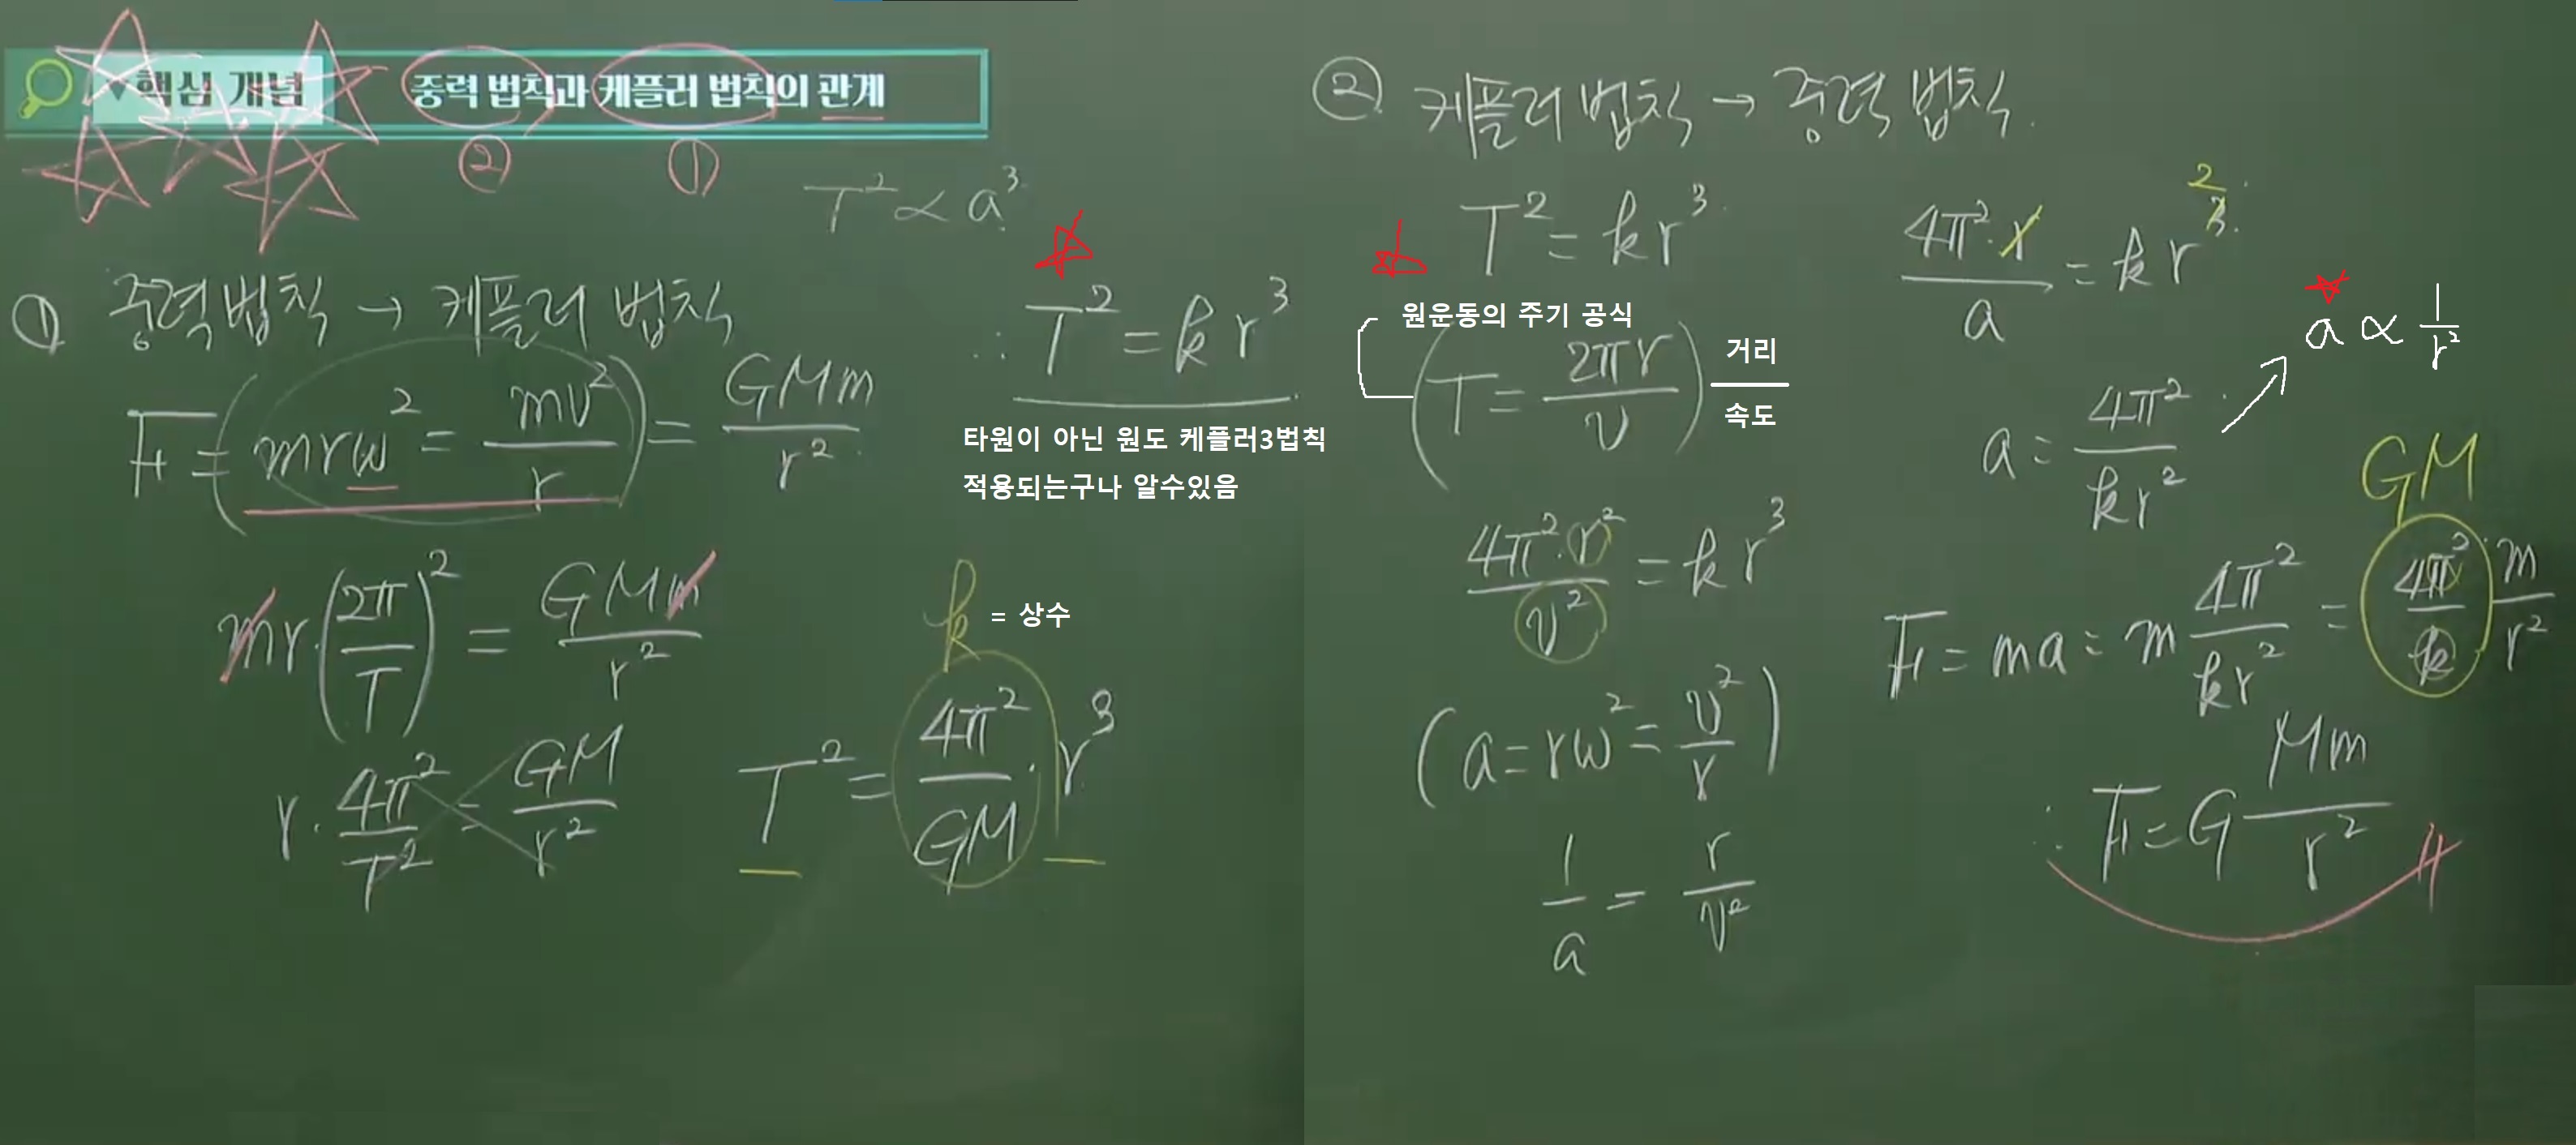 핵심 개념 중력 법칙과 케플러 법칙의 관계
② ①
T² ∝ a³
① 중력법칙 → 케플러 법칙
F = (mrω² = mv²/r) = GMm/r²
mr·(2π/T)² = GMm/r²
r·4π²/T² = GM/r²
k = 상수
T² = 4π²/GM · r³
∴ T² = kr³
타원이 아닌 원도 케플러3법칙
적용되는구나 알수있음
② 케플러 법칙 → 중력 법칙.
T² = kr³
원운동의 주기 공식
(T = 2πr/v) 거리/속도
4π²·r²/v² = kr³
(a = rω² = v²/r)
1/a = r/v²
4π²·r/a = kr³ 2
a = 4π²/kr²
a ∝ 1/r²
GM
F = ma = m 4π²/kr² = 4π²/k · m/r²
∴ F = G Mm/r²